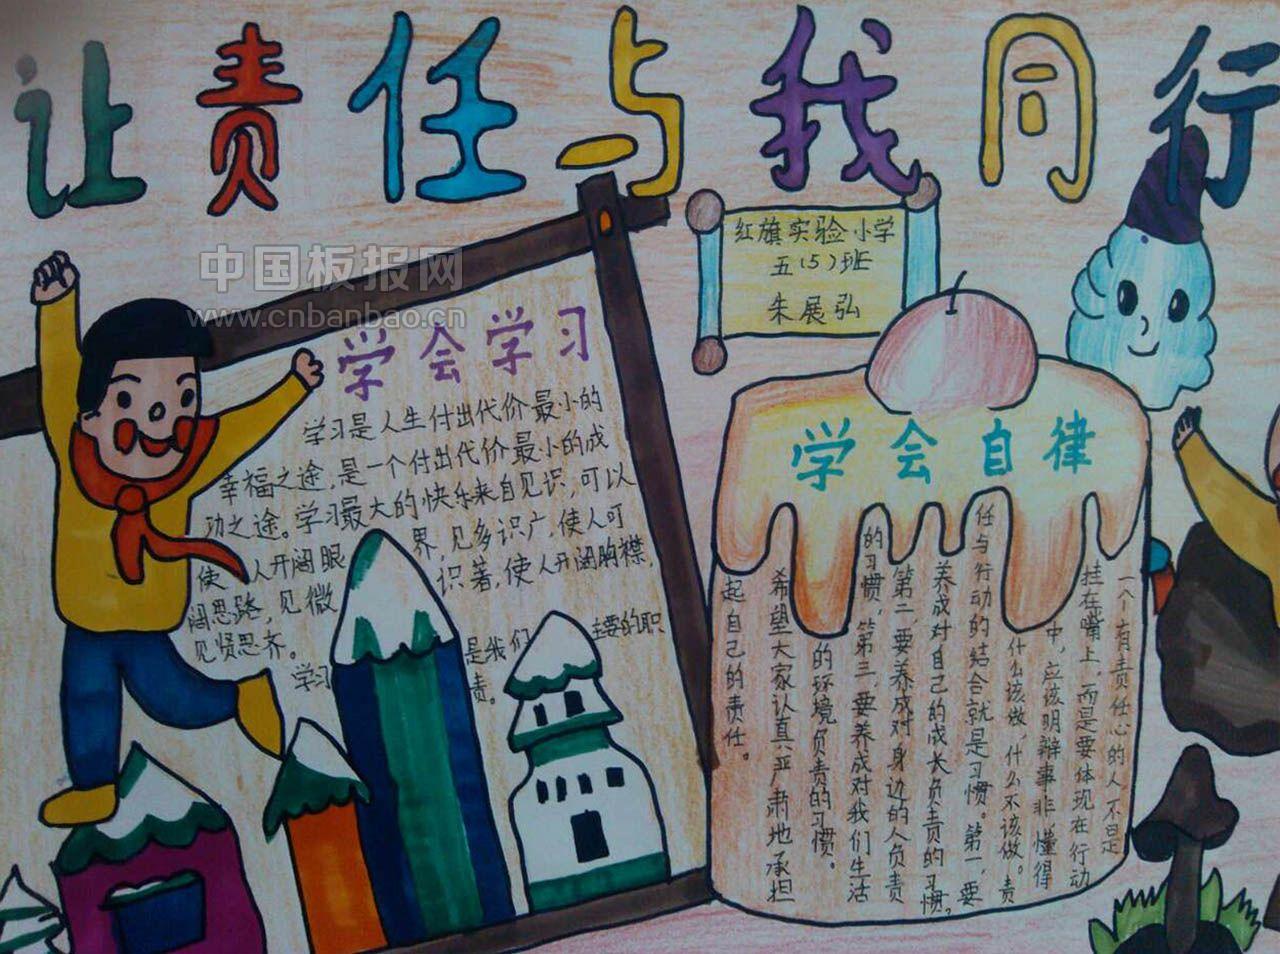 让责任与我同行
红旗实验小学
五(5)班
朱展弘
中国板报网
www.cnbanbao.cn
学会学习
学习是人生付出代价最小的
幸福之途,是一个付出代价最小的成
功之途。学习最大的快乐来自见识,可以
使 人开阔眼 界,见多识广,使人可
阔思路,见微 识著,使人开阔胸襟,
见贤思齐。
学习 是我们 主要的职
责。
学会自律
一个有责任心的人,不是
挂在嘴上,而是要体现在行动
中,应该明辩事非,懂得
什么该做,什么不该做。责
任与行动的结合就是习惯。第一,要
养成对自己的成长负责的习惯。
第二,要养成对身边的人负责
的习惯,第三,要养成对我们生活
的环境负责的习惯。
希望大家认真严肃地承担
起自己的责任。